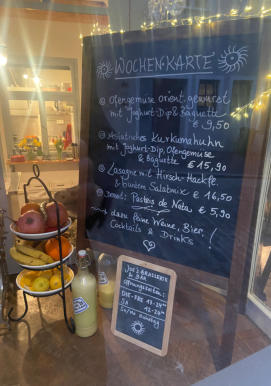 WOCHENKARTE
Ofengemüse orient. gewürzt
mit Joghurt-Dip & Baguette
€ 9,50
Asiatisches Kurkumahuhn
mit Joghurt-Dip, Ofengemüse
& Baguette € 15,90
Lasagne mit Hirsch-Hackfl.
& buntem Salatmix € 16,50
Dessert: Pasteis de Nata € 5,90
dazu feine Weine, Bier,
Cocktails & Drinks
Joe's BRASSERIE
& BAR
Öffnungszeiten:
DIE-FRE 17-24
SA 12-24
So/Mo Ruhetag